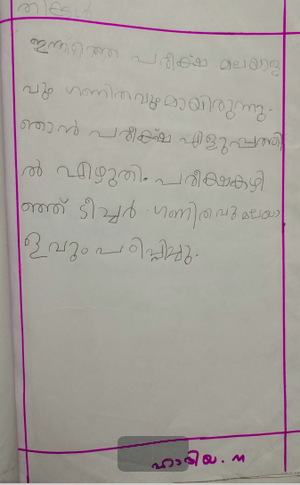 തിങ്കൾ
ഇന്നത്തെ പരീക്ഷ മലയാള
വും ഗണിതവുമായിരുന്നു.
ഞാൻ പരീക്ഷ എളുപ്പത്തി
ൽ എഴുതി. പരീക്ഷകഴി
ഞ്ഞ് ടീച്ചർ ഗണിതവുമലയാ
ളവും പഠിപ്പിച്ചു.
ഹാദിയ. N